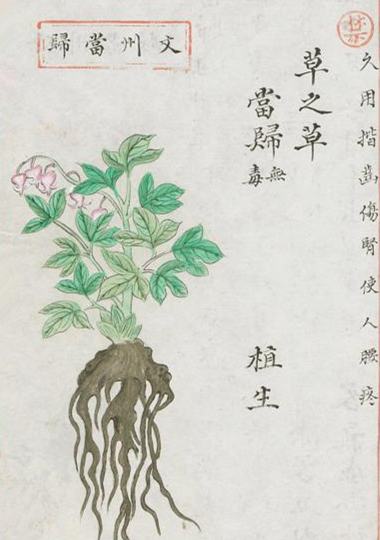 禁
久用揩齒傷腎使人腰疼
草之草
當歸 無毒
植生
文州當歸